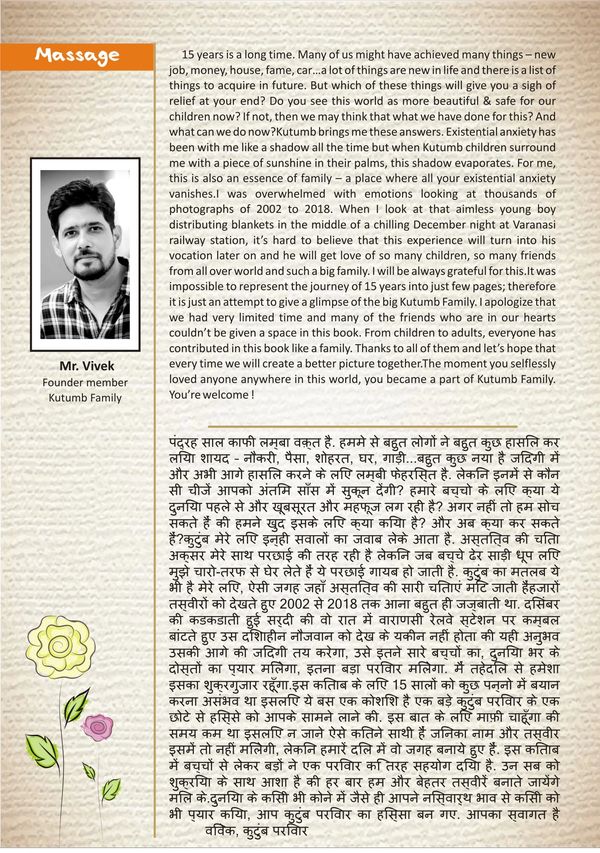 Massage
15 years is a long time. Many of us might have achieved many things – new
job, money, house, fame, car...a lot of things are new in life and there is a list of
things to acquire in future. But which of these things will give you a sigh of
relief at your end? Do you see this world as more beautiful & safe for our
children now? If not, then we may think that what we have done for this? And
what can we do now?Kutumb brings me these answers. Existential anxiety has
been with me like a shadow all the time but when Kutumb children surround
me with a piece of sunshine in their palms, this shadow evaporates. For me,
this is also an essence of family – a place where all your existential anxiety
vanishes.I was overwhelmed with emotions looking at thousands of
photographs of 2002 to 2018. When I look at that aimless young boy
distributing blankets in the middle of a chilling December night at Varanasi
railway station, it's hard to believe that this experience will turn into his
vocation later on and he will get love of so many children, so many friends
from all over world and such a big family. I will be always grateful for this.It was
impossible to represent the journey of 15 years into just few pages; therefore
it is just an attempt to give a glimpse of the big Kutumb Family. I apologize that
we had very limited time and many of the friends who are in our hearts
couldn't be given a space in this book. From children to adults, everyone has
contributed in this book like a family. Thanks to all of them and let's hope that
every time we will create a better picture together.The moment you selflessly
loved anyone anywhere in this world, you became a part of Kutumb Family.
You're welcome !
Mr. Vivek
Founder member
Kutumb Family
पंद्रह साल काफी लम्बा वक़्त है. हममे से बहुत लोगों ने बहुत कुछ हासलि कर
लयिा शायद - नौकरी, पैसा, शोहरत, घर, गाड़ी...बहुत कुछ नया है जदिगी में
और अभी आगे हासलि करने के लएि लम्बी फेहरसि्त है. लेकनि इनमें से कौन
सी चीजें आपको अंतमि साँस में सुकून देंगी? हमारे बच्चो के लएि क्या ये
दुनयिा पहले से और खूबसूरत और महफूज लग रही है? अगर नहीं तो हम सोच
सकते हैं की हमने खुद इसके लएि क्या कयिा है? और अब क्या कर सकते
हैं?कुटुंब मेरे लएि इन्ही सवालों का जवाब लेके आता है. अस्ततित्व की चतिा
अक्सर मेरे साथ परछाई की तरह रही है लेकनि जब बच्चे ढेर साड़ी धूप लएि
मुझे चारो-तरफ से घेर लेते हैं ये परछाई गायब हो जाती है. कुटुंब का मतलब ये
भी है मेरे लएि, ऐसी जगह जहाँ अस्ततित्व की सारी चतिाएं मटि जाती हैंहजारों
तस्वीरों को देखते हुए 2002 से 2018 तक आना बहुत ही जज्बाती था. दसिंबर
की कडकडाती हुई सर्दी की वो रात में वाराणसी रेलवे स्टेशन पर कम्बल
बांटते हुए उस दशिाहीन नौजवान को देख के यकीन नहीं होता की यही अनुभव
उसकी आगे की जदिगी तय करेगा, उसे इतने सारे बच्चों का, दुनयिा भर के
दोस्तों का प्यार मलिेगा, इतना बड़ा परविार मलिेगा. मैं तहेदलि से हमेशा
इसका शुक्रगुजार रहूँगा.इस कतिाब के लएि 15 सालों को कुछ पन्नो में बयान
करना असंभव था इसलएि ये बस एक कोशशि है एक बड़े कुटुंब परविार के एक
छोटे से हसि्से को आपके सामने लाने की. इस बात के लएि माफ़ी चाहूँगा की
समय कम था इसलएि न जाने ऐसे कतिने साथी हैं जनिका नाम और तस्वीर
इसमें तो नहीं मलिेगी, लेकनि हमारें दलि में वो जगह बनाये हुए हैं. इस कतिाब
में बच्चों से लेकर बड़ों ने एक परविार की तरह सहयोग दयिा है. उन सब को
शुक्रयिा के साथ आशा है की हर बार हम और बेहतर तस्वीरें बनाते जायेंगे
मलि के.दुनयिा के कसिी भी कोने में जैसे ही आपने नसि्वार्थ भाव से कसिी को
भी प्यार कयिा, आप कुटुंब परविार का हसि्सा बन गए. आपका स्वागत है
वविेक, कुटुंब परविार